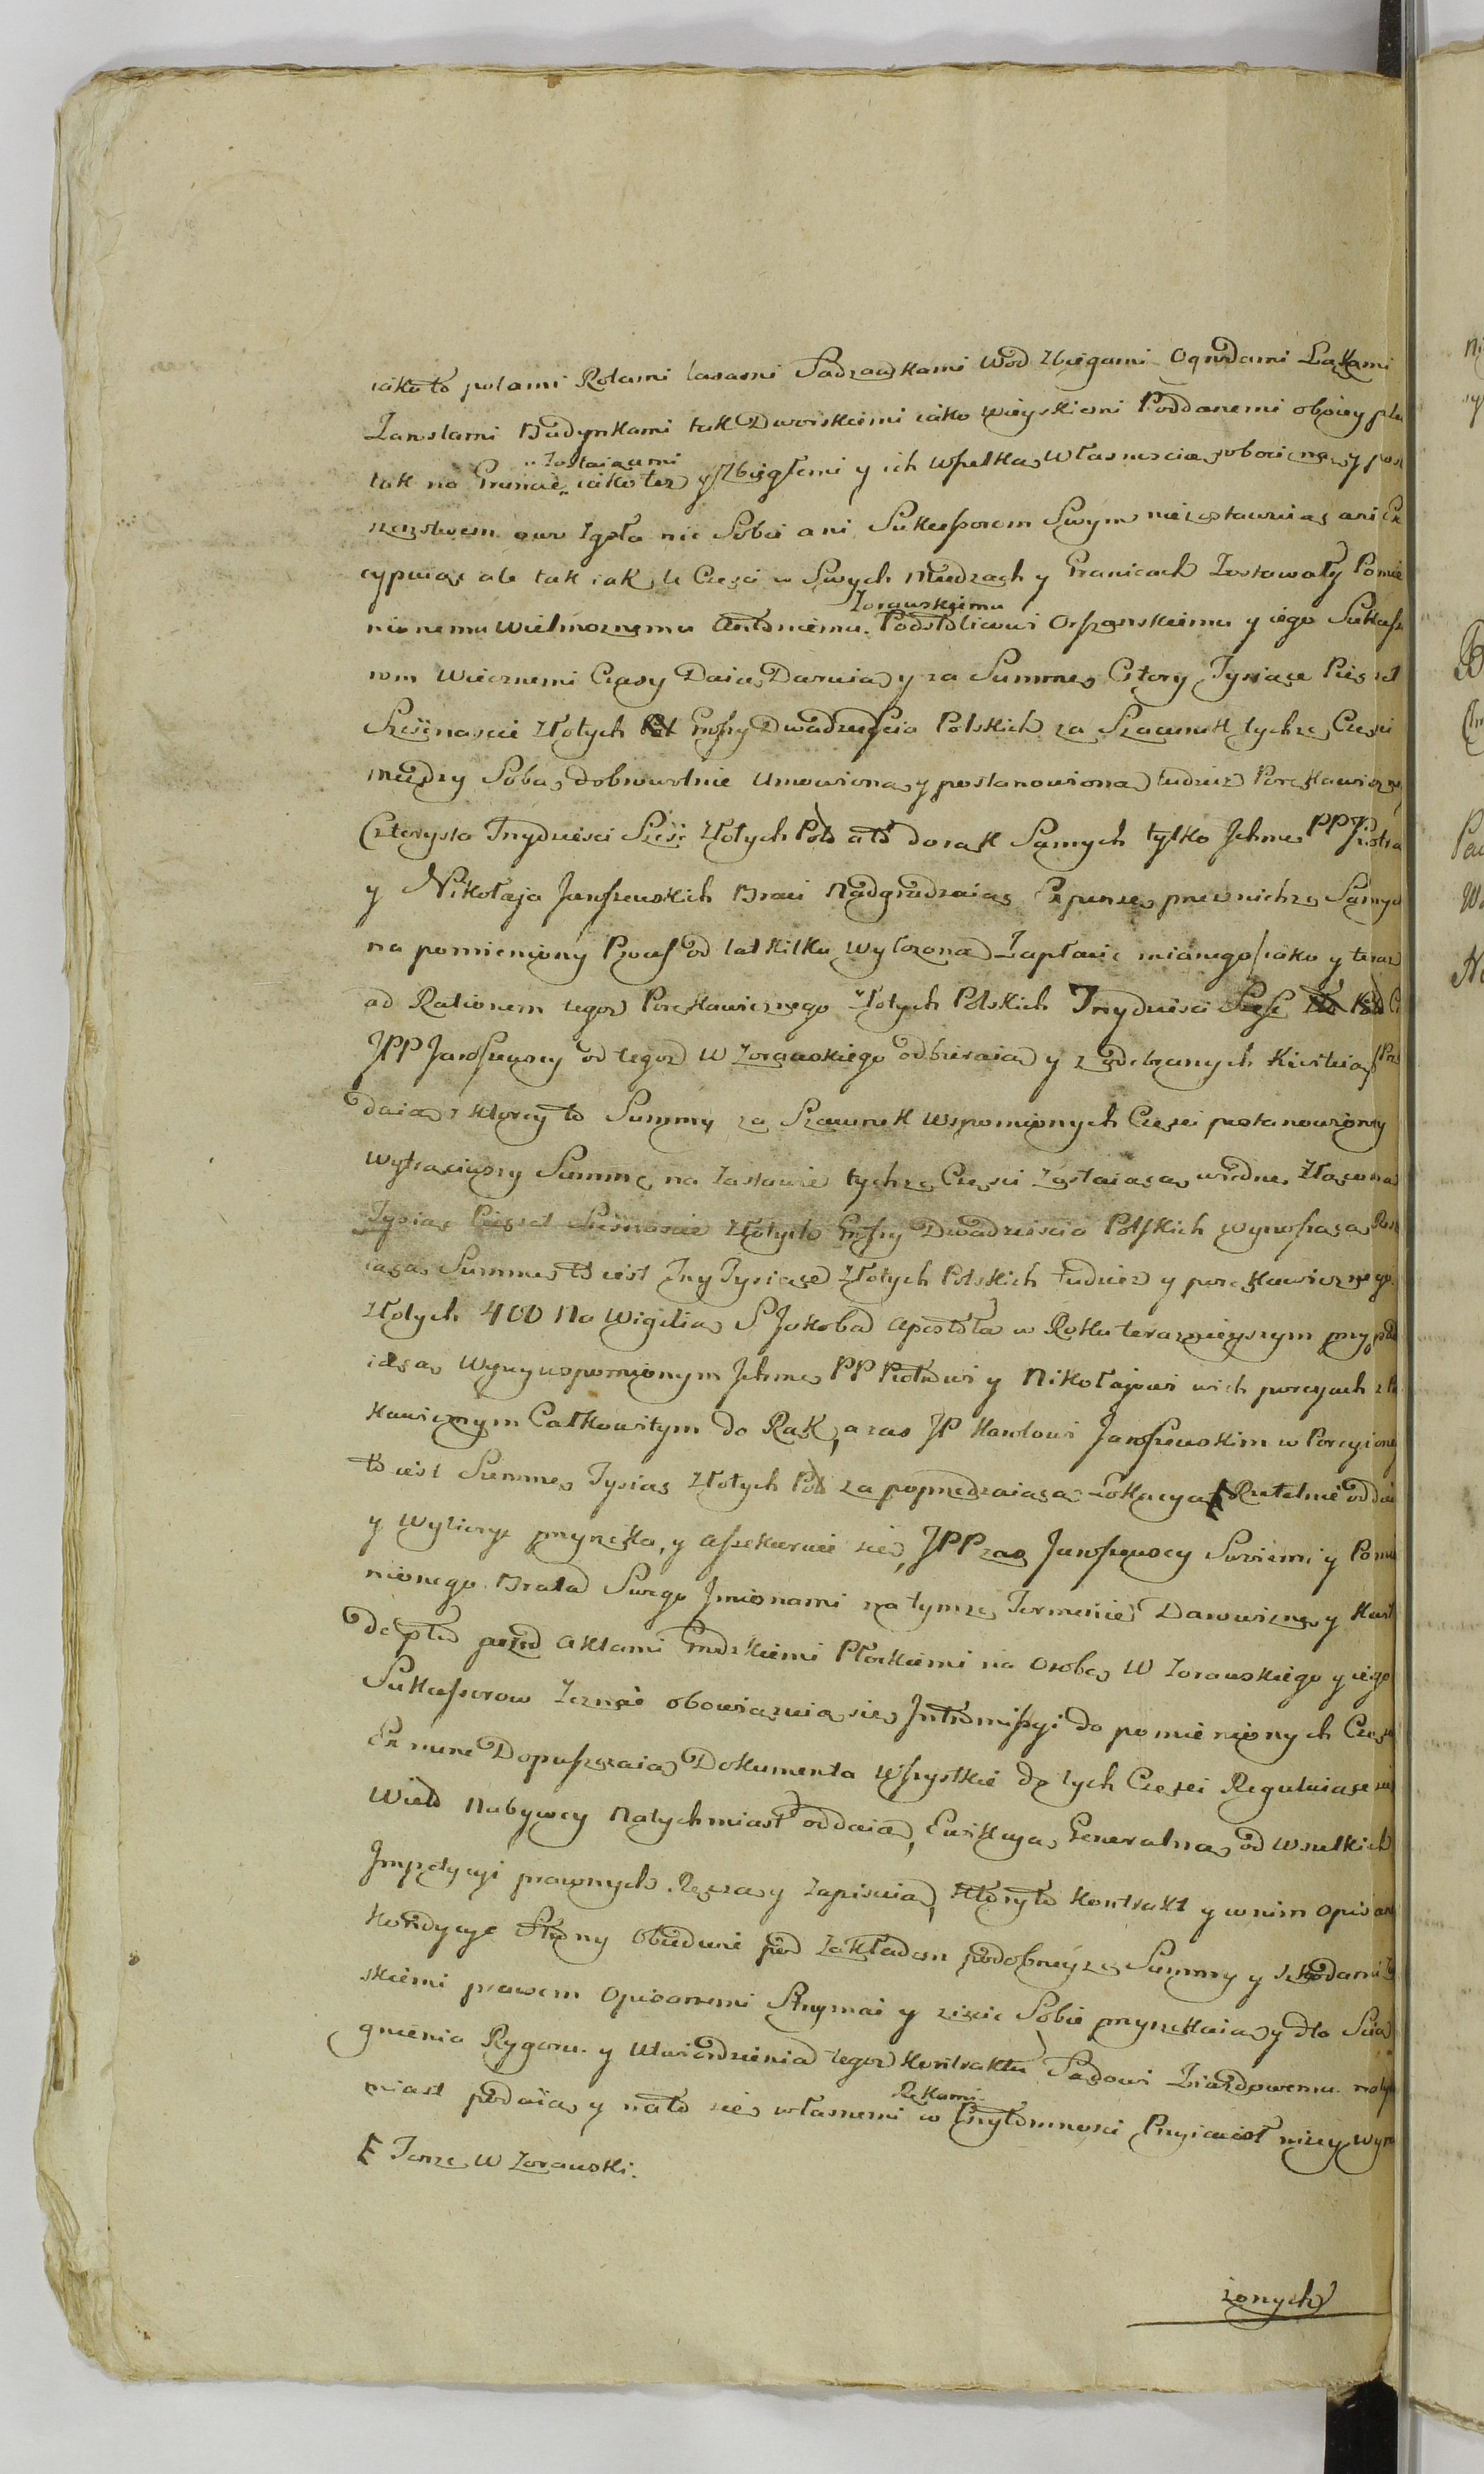 iako to polami Rolami lasami Sadzawkami Wod Zbiegami Ogrodami Łąkami
Zaroslami Budynkami tak Dworskiemi iako wieyskiemi Poddanemi oboiey płci
tak na Gruncie „ iako tez y Zbiegłemi y ich wszelką Własnoscią robocizną y pos
„ Zostaiącemi
szenstwem owo Zgoła nic Sobie ani Sukcessorom Swym niezostawuiąc ani Ex
cypuiąc ale tak iak te Częsci w Swych Miedzach y Granicach Zostawały Pomie
nionemu Wielmoznemu Antoniemu Podstoliemu Orszanskiemu y iego Sukcess
Zorawskiemu
rom Wiecznemi Czasy Daią Daruią y za Summę Cztery Tysiące Pięset
Szesnascie Złotych Groszy Dwadziescia Polskich za Szacunek tychze Częsci
między Sobą dobrowolnie Umowioną y postanowioną tudziez Porękawiczne
Czterysta Trzydziesci Szesc Złotych Pols a to do rąk Samych tylko Jchmc PP Piotra
y Nikołaja Jaroszewskich Braci Nadgradzaiąc Expensę przez nichze Samych
na pomieniony Process od lat kilku wyłozoną Zapłacic mianego iako y teraz
ad Rationem tegoz Poręskawicznego Złotych Polskich Trzydziesci Szesc
JPP Jaroszewscy od tegoz W Zorawskiego odbieraią y z odebranych Kwituią Prze
daią z ktorey to Summy za Szacunek wspomionych Częsci postanowioney
wytrąciwszy Summę na Zastawie tychze Częsci Zostaiącą w iedne Złączoną
Tysiąc Pięset Szesnascie Złotych Groszy Dwadziescia Polskich wynoszącą Resz
iącą Summę to iest Trzy Tysiące Złotych Polskich tudziez y poręskawicznego
Złotych 400 Na Wigilią S Jakoba Apostoła w Roku teraznieyszym przypad
iącą Wyzywspomionym Jchmc PP Piotrowi y Nikołajowi w ich porcyach z Po
kawicznym Całkowitym do Rąk, a zas JP Karolowi Jaroszewskim w Porcyi one
to iest Summę Tysiąc Złotych Pols za poprzedzaiącą Lokacyą Rzetelnie oddac
y Wyliczyc przyrzeka, y assekuruie się, JPP zas Jaroszewscy Swoiemi y Pomie
nionego Brata Swego Jmionami na tymze Terminie Darowiznę y Kwit
de pto przed Aktami Grodzkiemi Płockiemi na Osobę W Zorawskiego y iego
Sukcessorow Zeznac obowiązuią się Jntromissyi do pomienionych Częsci
Ex nunc Dopuszczaią Dokumenta Wszystkie do tych Częsci Reguluiące się
Wielo Nabywcy Natychmiast oddaią, Ewikcyą Generalną od wszelkich
Jmpetycyi prawnych Ręczą y Zapisuią, Ktoryto Kontrakt y w nim Opisane
Kondycye Strony Obiedwie pod Zakładem podobneyze Summy y Szkodami Zie
skiemi prawem Opisanemi Strzymac y ziscic Sobie przyrzekaią y dla Scią
gnienia Rygoru y Utwierdzenia tegoz Kontraktu Sądowi Ziazdowemu natych
miast podaią y na to się własnemi w Przytomnosci Przyiacioł nizey wyra
Rękami
Ⱶ Tenze W Zorawski.
zonych